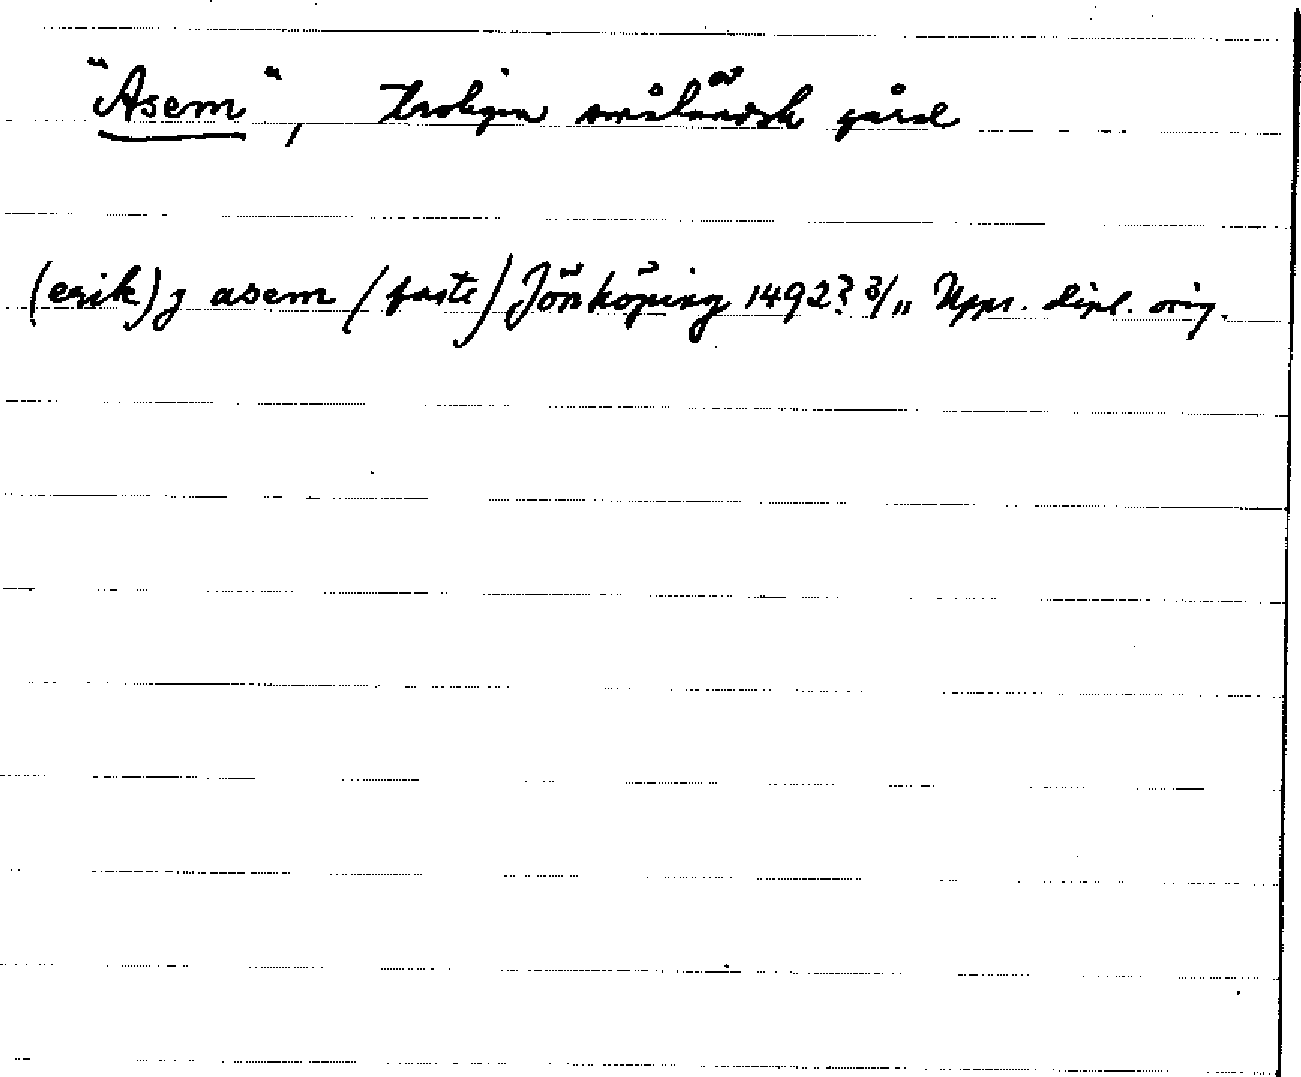 "Asem", troligen småländsk gård
(erik) j asem (faste) Jönköping 1492? 3/11 Upps. dipl. orig.